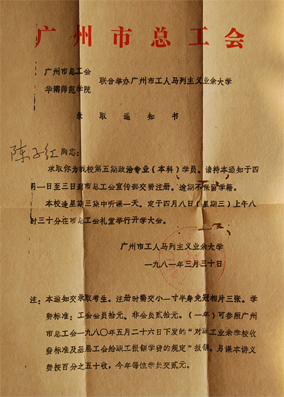 广州市总工会
广州市总工会
华南师范学院
联合举办广州市工人马列主义业余大学
录取通知书
陈子红同志：
录取你为我校第五期政治专业（本科）学员。请持本通知于四
月一日至三日到市总工会宣传部交费注册。逾期不保留学籍。
本校逢星期三晚中听课一天。定于四月八日（星期三）上午八
时三十分在市总工会礼堂举行开学大会。
广州市工人马列主义业余大学
一九八一年三月三十日
注：本通知交录取考生。注册时需交小一寸半身免冠相片三张。学
费标准：工会会员拾元。非会员贰拾元。（一年）可参照广州
市总工会一九八〇年五月二十六日下发的“对职工业余学校收
费标准及基层工会给职工报销学费的规定”报销。另课本讲义
费按百分之五十收，今年每位学员交贰元。